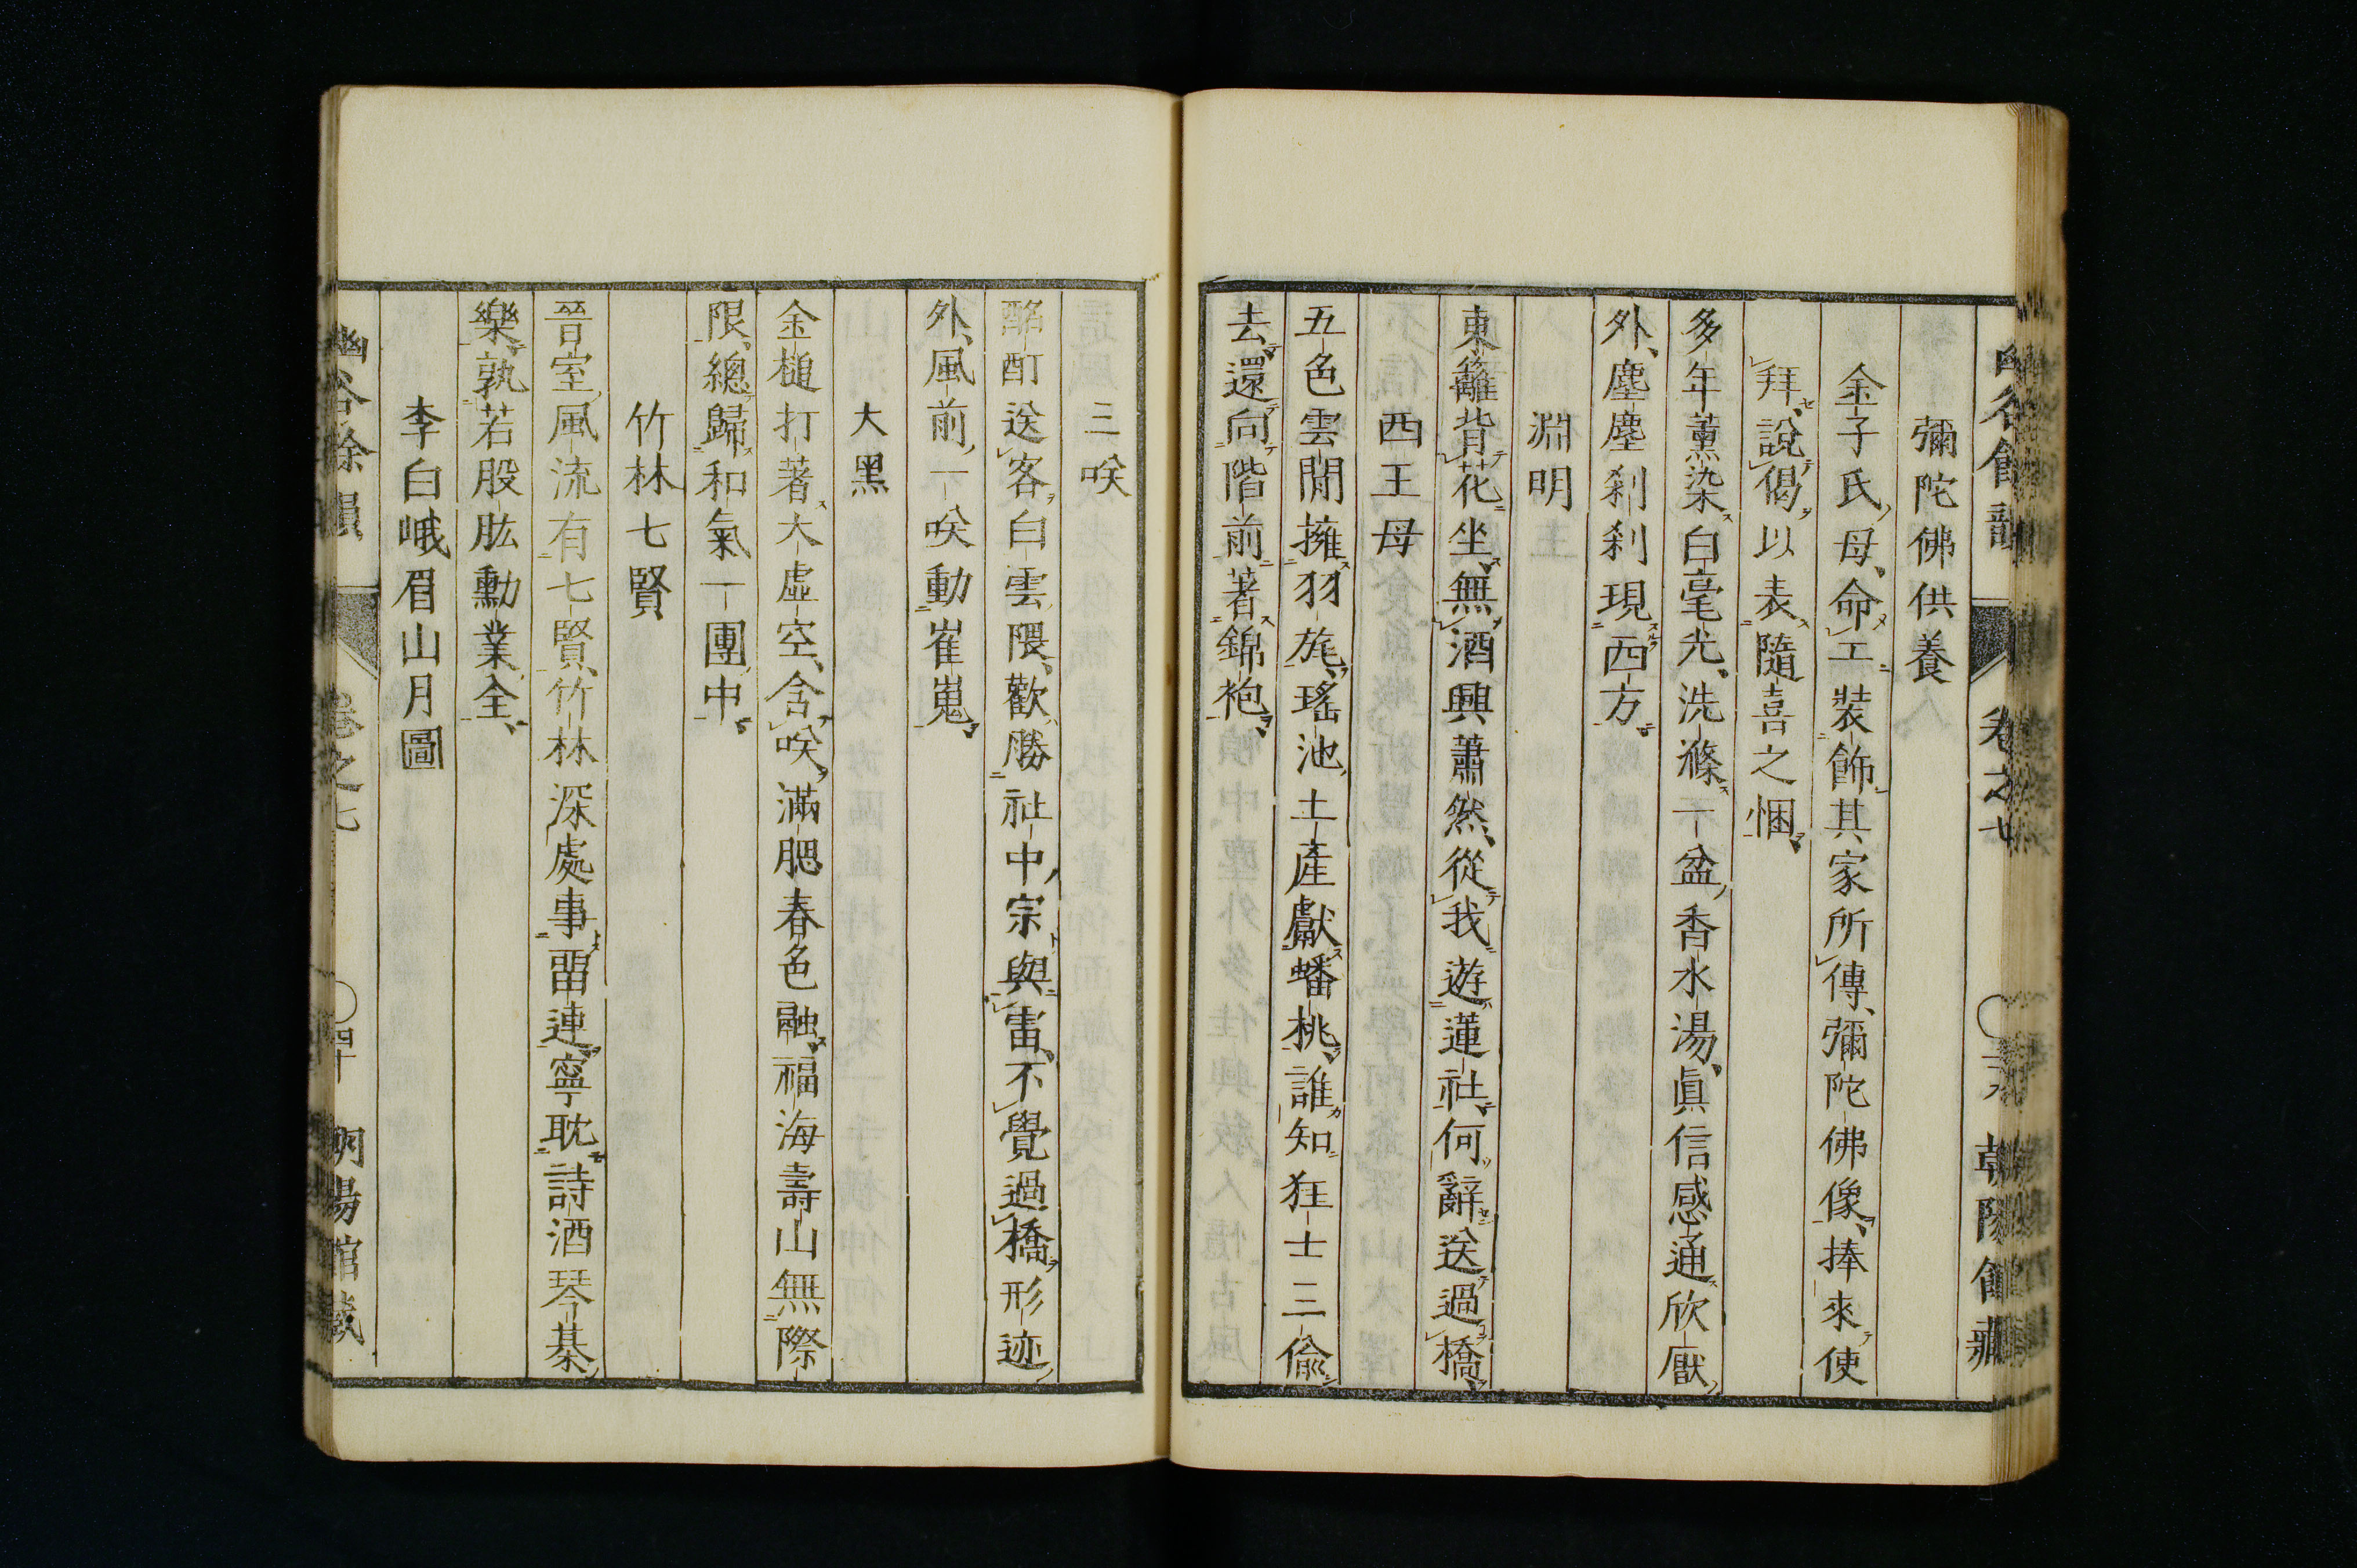 幽谷餘韻 卷之七 朝陽館藏
彌陀佛供養
金子氏母命工裝飾其家所傳彌陀佛像捧來使
拜說偈以表隨喜之悃
多年薰染白毫光洗滌一盆香水湯眞信感通欣厭
外塵塵剎剎現西方
淵明
東籬背花坐無酒興蕭然從我遊蓮社何辭送過橋
西王母
五色雲開擁羽旄瑤池土產獻蟠桃誰知狂士三偸
去還向階前著錦袍
三咲
酩酊送客白雲隈歡勝社中宗與雷不覺過橋形迹
外風前一咲動崔嵬
大黑
金槌打著大虛空含咲滿腮春色融福海壽山無際
限總歸和氣一團中
竹林七賢
晉室風流有七賢竹林深處事畱連寧耽詩酒琴棊
樂孰若股肱勳業全
李白峨眉山月圖
幽谷餘韻 卷之七 〇四十 朝陽館藏